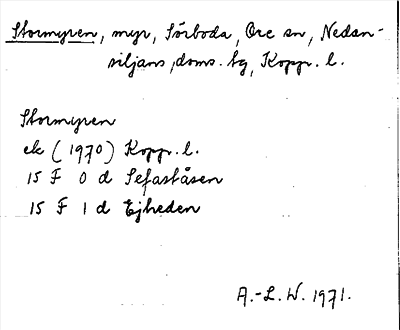 Stormyren, myr, Sörboda, Ore sn, Nedan-
siljans, doms. tg, Kopp. l.
Stormyren
ek (1970) Kopp. l.
15 F 0 d Sefaståsen
15 F 1 d Ejheden
A.-L. W. 1971.